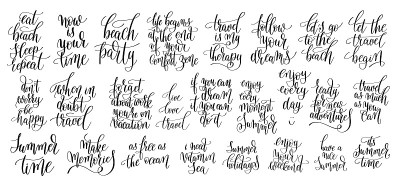 eat
beach
sleep
repeat
now
is
your
time
beach
party
life begins
at the end
of your
comfort zone
travel
is my
therapy
follow
your
dreams
let's go
to the
beach
let the
travel
begin
don't
worry
be
happy
when in
doubt
travel
forget
about work
you're on
vacation
live
love
travel
if you can
dream it
you can
do it
enjoy
every
moment
of
Summer
enjoy
every
day
ready
for new
adventures
travel
as much
as you
can
Summer
time
make
Memories
as free as
the ocean
i need
Vitamin
Sea
Summer
holidays
enjoy
your
weekend
have a
nice
Summer
it's
Summer
time